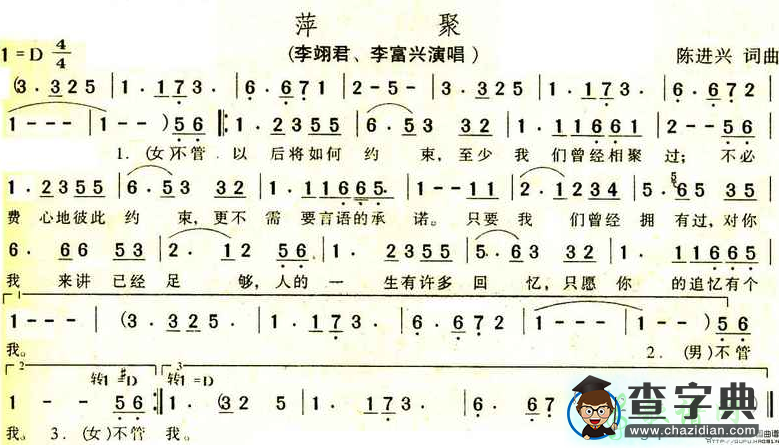 萍 聚
1=D 4/4 (李翊君、李富兴演唱) 陈进兴 词曲
(3 · 3 2 5 | 1 · 1 7 3 · | 6 · 6 7 1 | 2 - 5 - | 3 · 3 2 5 | 1 · 1 7 3 · | 6 · 6 7 2 |
1 - - - | 1 - - ) 5 6 ‖: 1 · 2 3 5 5 | 6 · 5 3 3 2 | 1 · 1 1 6 6 1 | 2 - - 5 6 |
1. (女)不管 以 后将如何 约 束, 至少 我 们曾经相聚 过; 不必
1 · 2 3 5 5 | 6 · 5 3 3 2 | 1 · 1 1 6 6 5 | 1 - - 1 1 | 2 · 1 2 3 4 | 5 · 6 5 3 5 |
费 心地彼此 约 束, 更不 需 要言语的承 诺。 只要 我 们曾经 拥 有过, 对你
6 · 6 6 5 3 | 2 · 1 2 5 6 | 1 · 2 3 5 5 | 5 · 6 3 3 2 | 1 · 1 1 6 6 5 |
我 来讲 已经 足 够, 人的 一 生有许多 回 忆, 只愿 你 的追忆有个
1
1 - - - | (3 · 3 2 5 | 1 · 1 7 3 · | 6 · 6 7 2 | 1 - - - | 1 - - ) 5 6
我。 2. (男)不管
2 转1=#D 3 转1=D
1 - - 5 6 :‖ 1 · (3 2 5 | 1 · 1 7 3 · | 6 · 6 7
我。 3. (女)不管 我。
查字典
www.chazidian.com